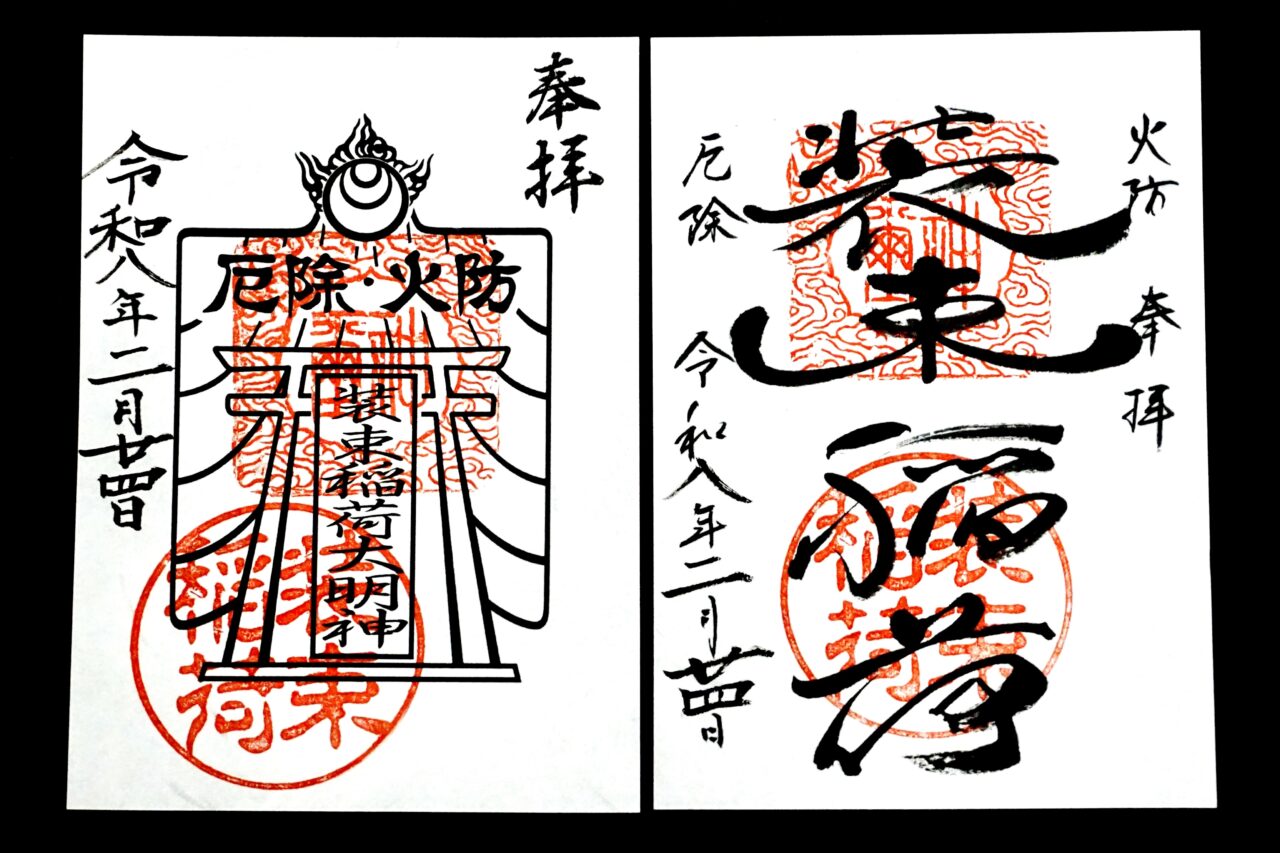 奉拝
厄除・火防
装束稲荷大明神
令和八年二月廿四日
装束
稲荷
火防
奉拝
装束
稲荷
厄除
令和八年二月廿四日
装束
稲荷